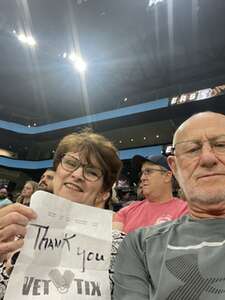 THANK YOU
VET TIX